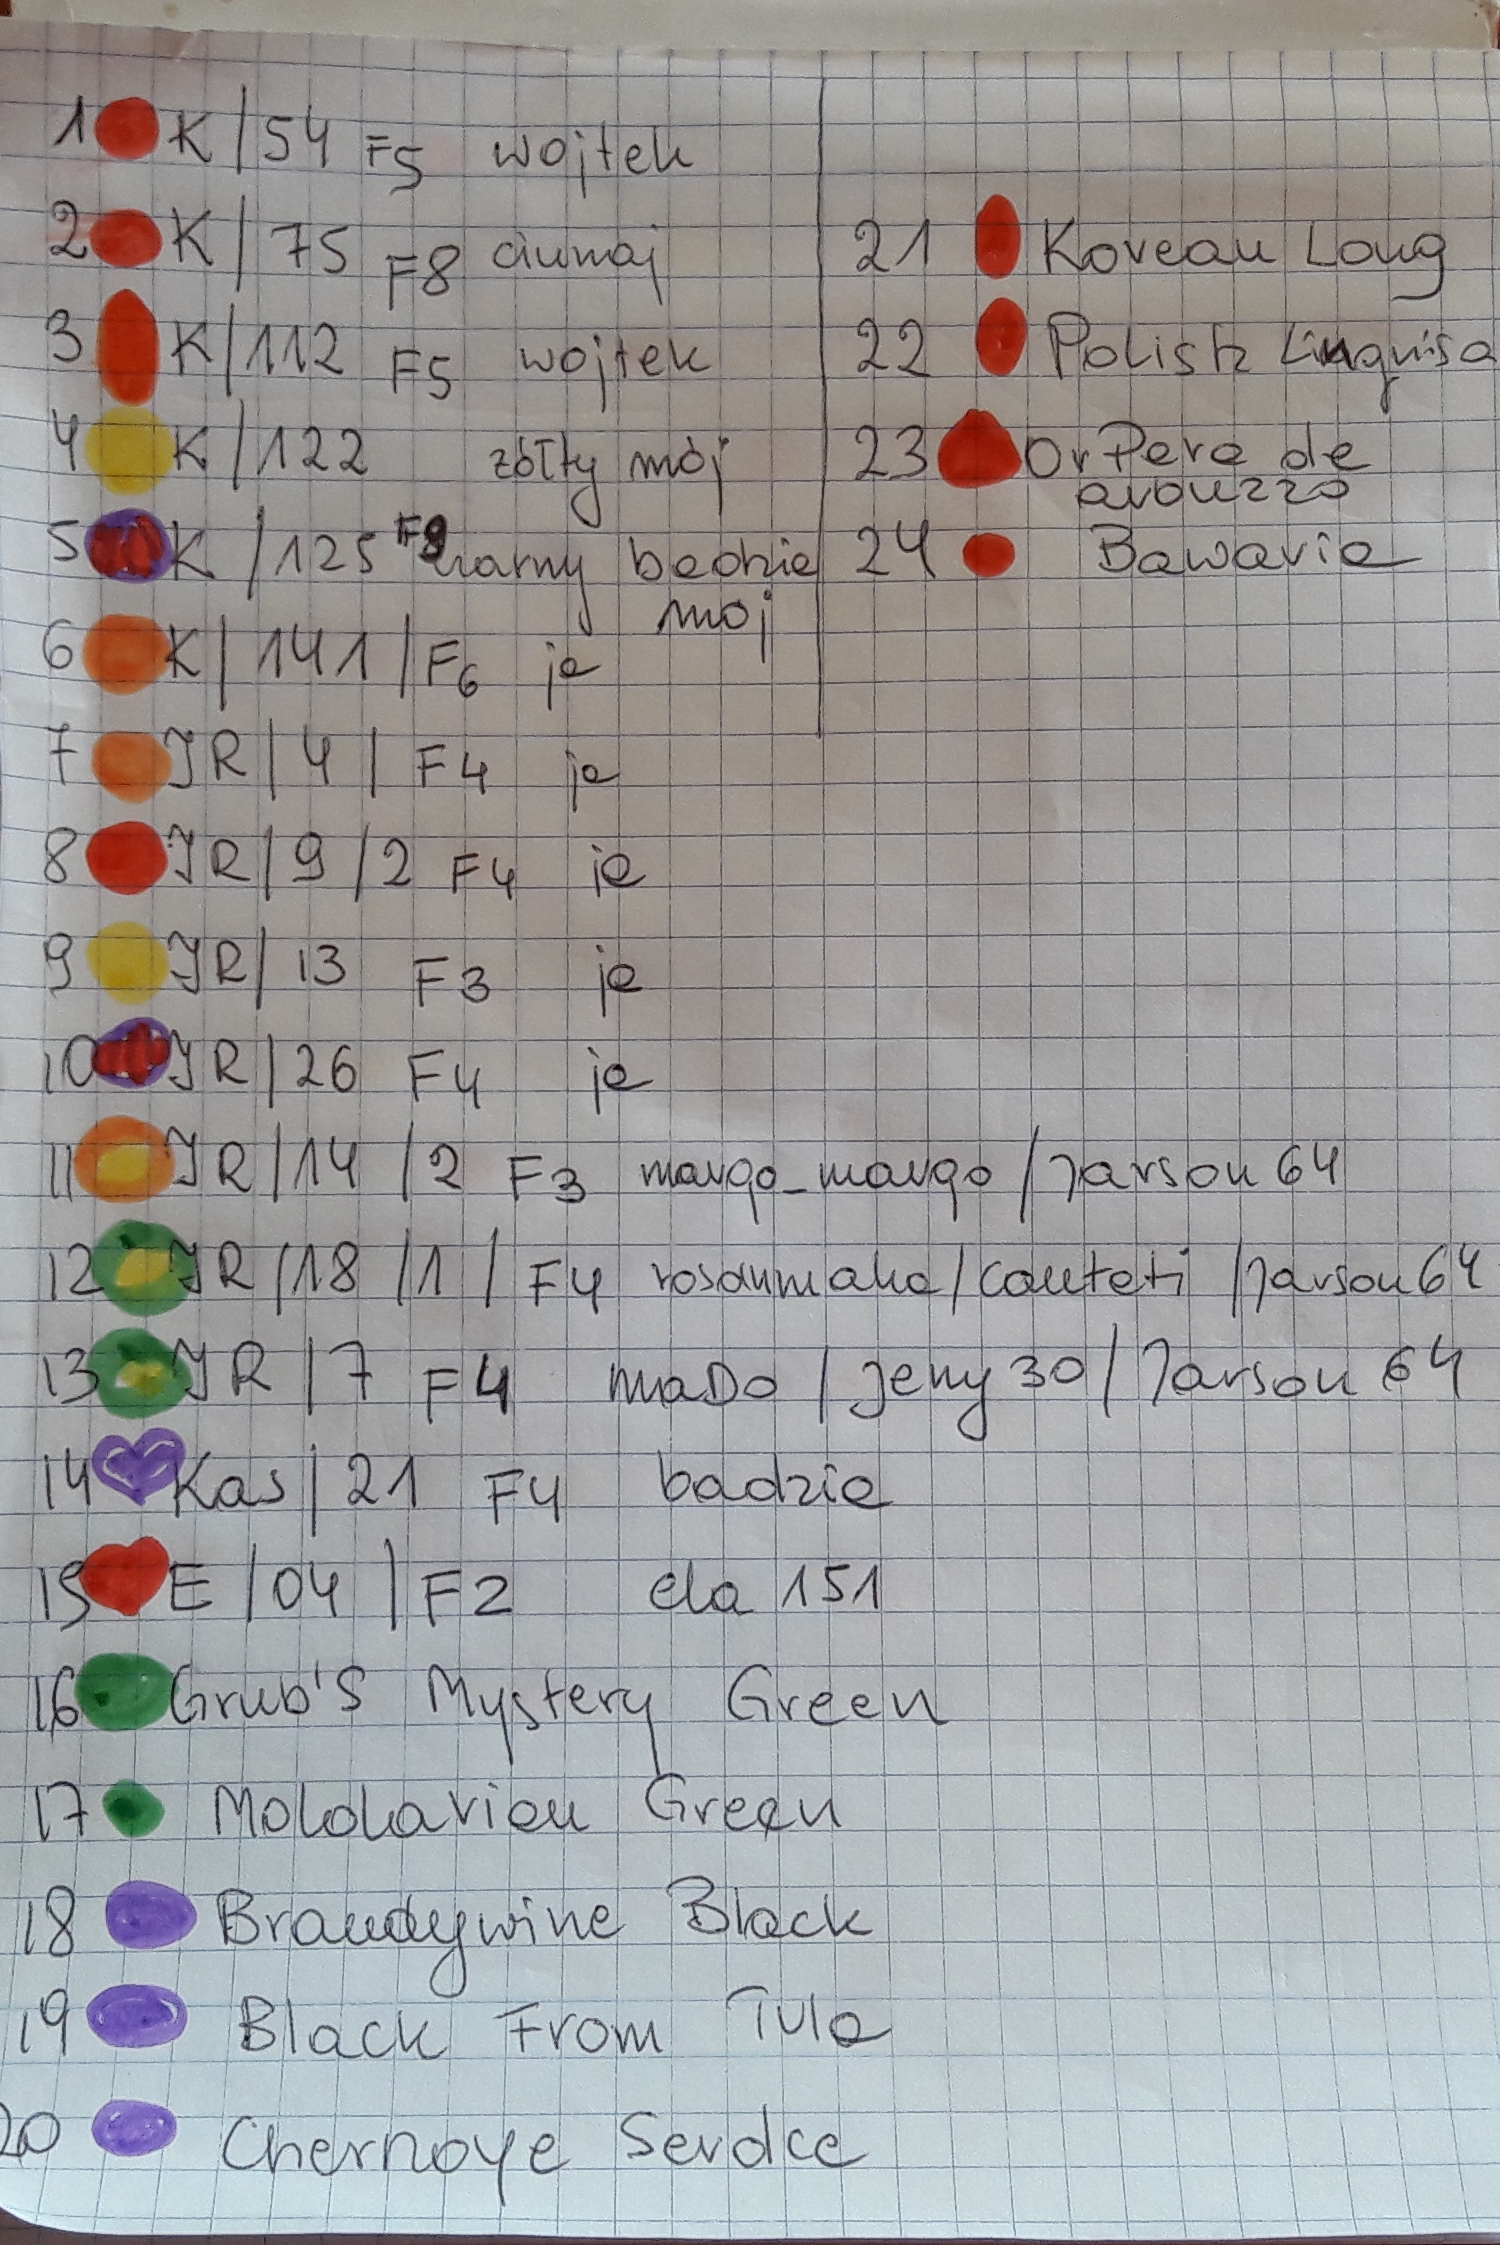 1 K/54 F5 wojtek
2 K/75 F8 ciumaj
3 K/112 F5 wojtek
4 K/122 zółty mój
5 K/125 F9 czarny bedzie
moj
6 K/141/F6 ja
7 JR/4/F4 ja
8 JR/9/2 F4 ja
9 JR/13 F3 ja
10 JR/26 F4 ja
11 JR/14/2 F3 margo_margo/Jarson64
12 JR/18/1/F4 rosannaka/canteti/Jarson64
13 JR/7 F4 maDo/Jeny30/Jarson64
14 Kas/21 F4 badzia
15 E/04/F2 ela 151
16 Grub's Mystery Green
17 Moldavian Green
18 Brandywine Black
19 Black From Tula
20 Chernoye Serdce
21 Korean Long
22 Polish Linguisa
23 Or Pera de
abruzzo
24 Bawaria